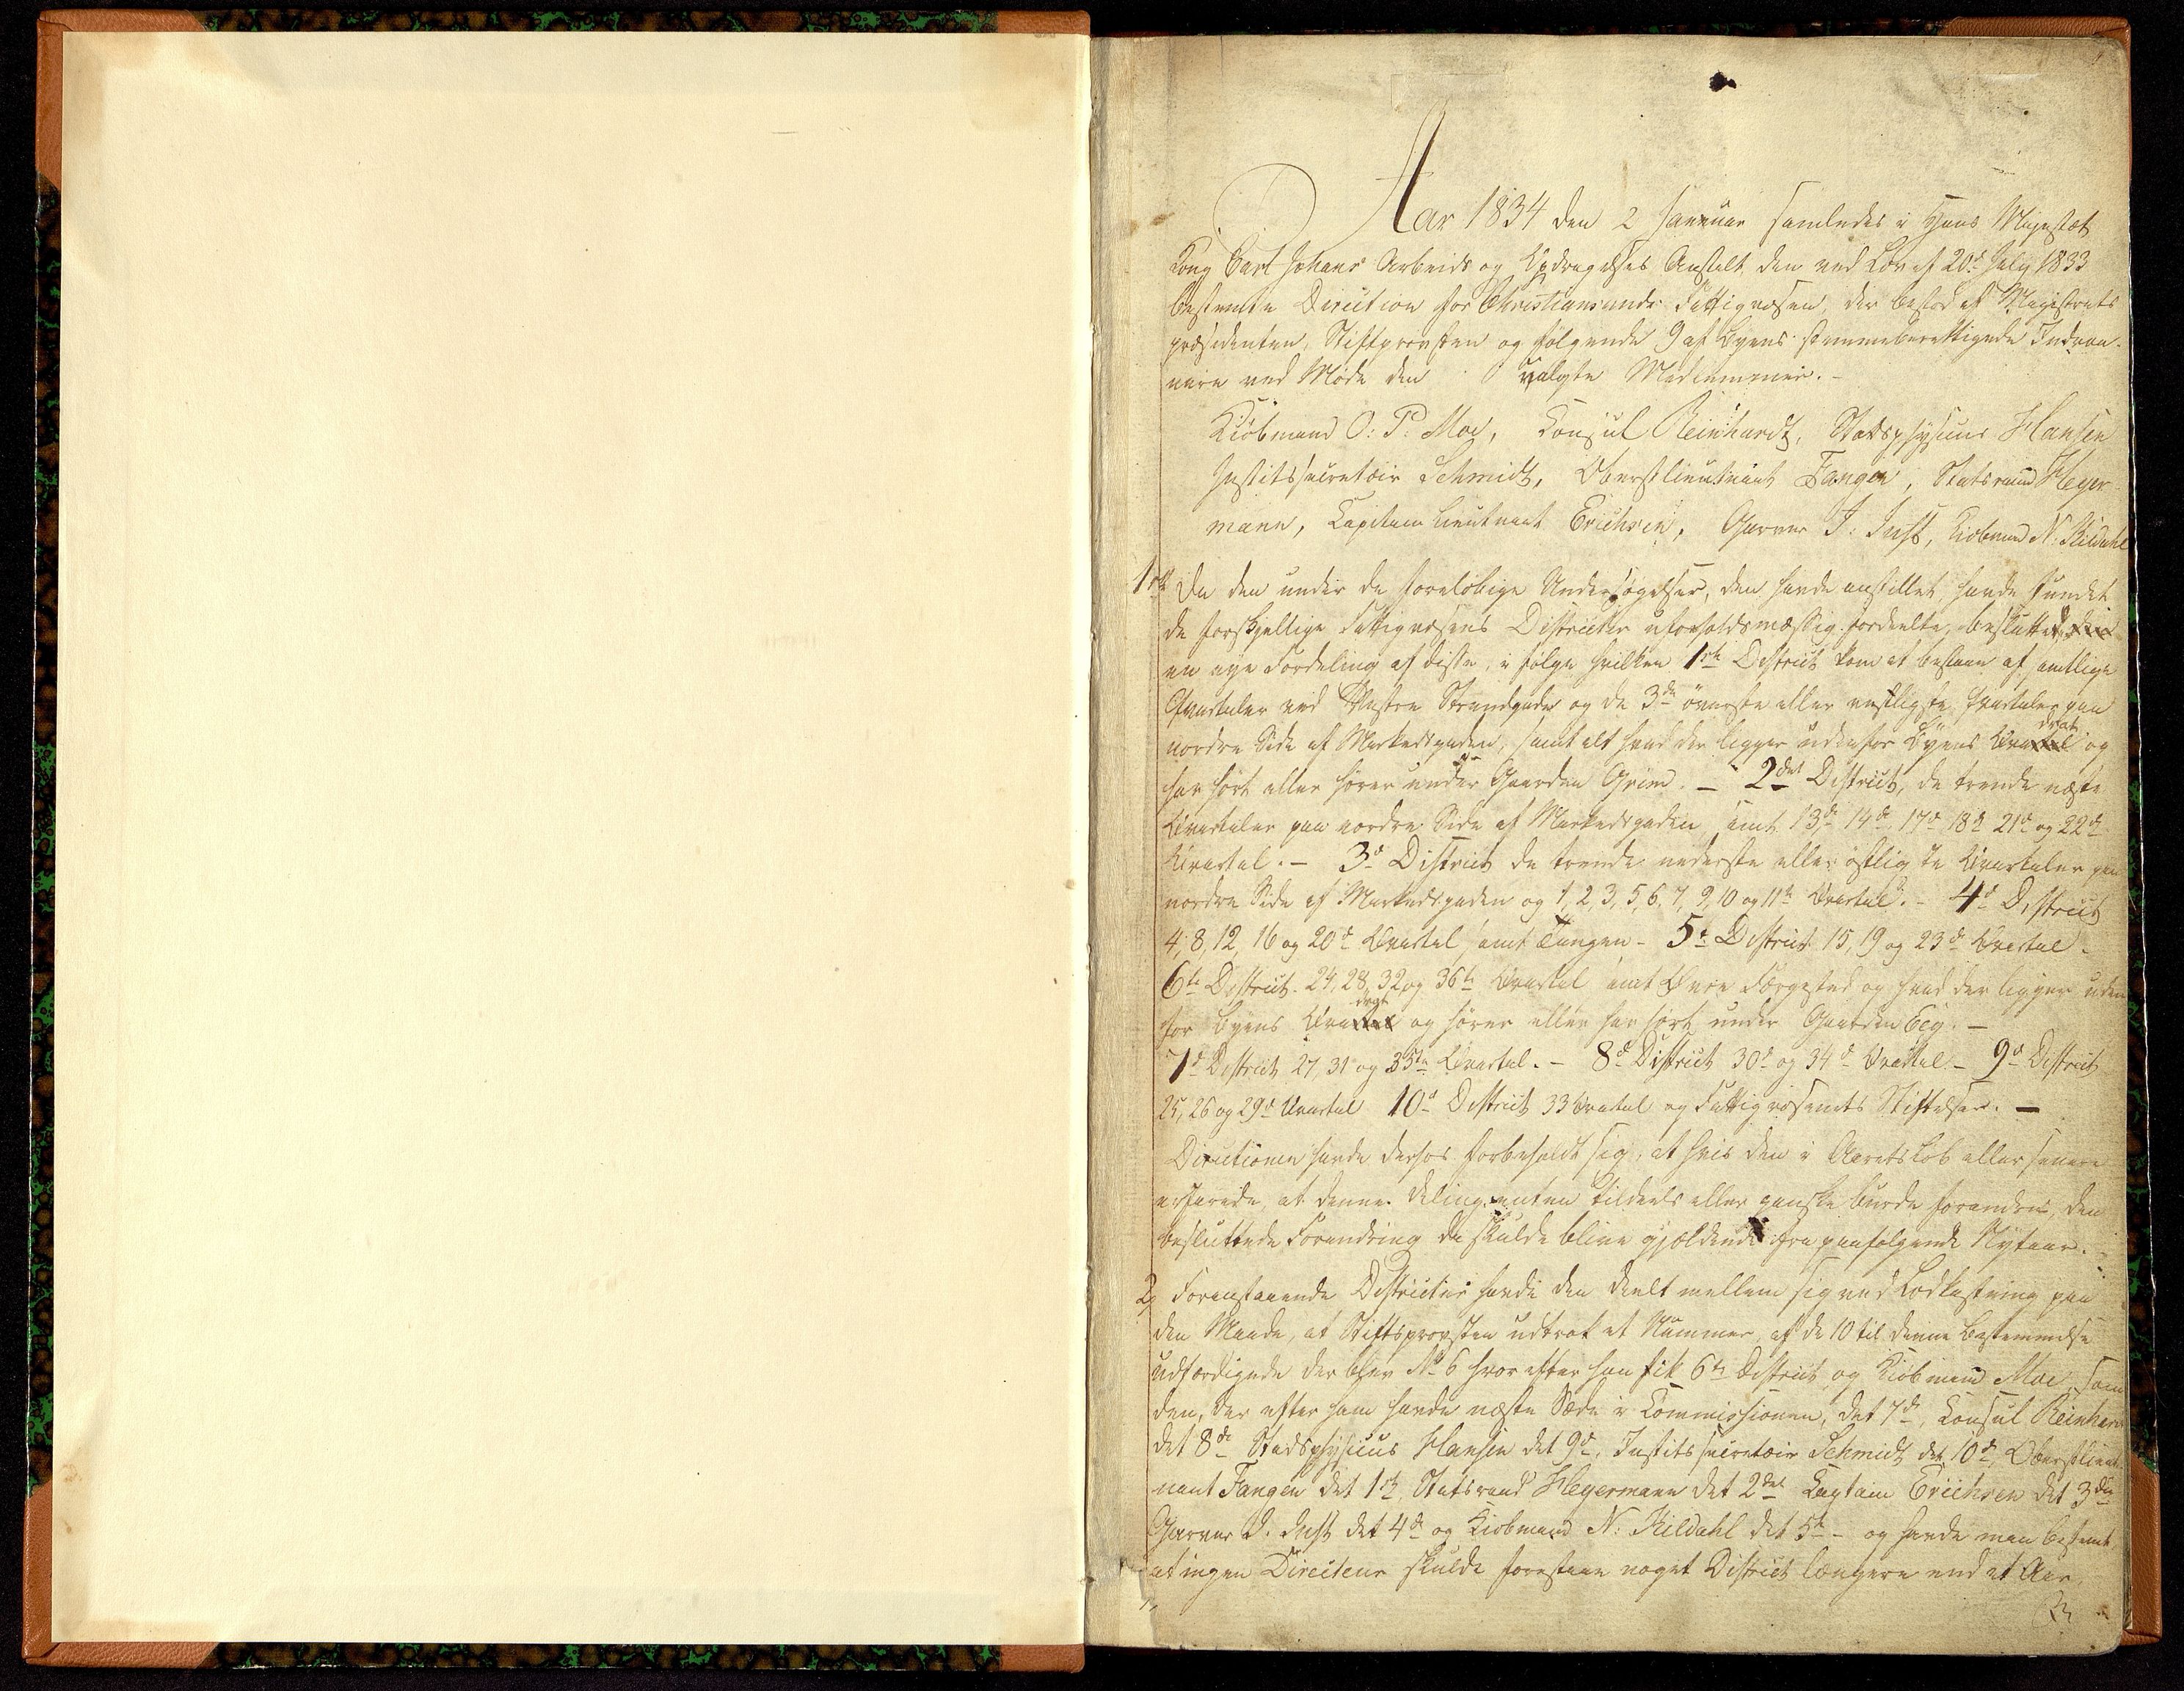 Aar 1834 den 2 Januar samledes i Hans Majestæt
Kong Carl Johans Arbeids og Opdragelses Anstalt den ved Lov af 20de July 1833
bestemte Direction for Christiansands Fattigvæsen, der bestod af Magistrats
præsidenten, Stiftprovsten og følgende 9 af Byens stemmeberettigede Indvaa-
nere ved Møde den valgte Medlemmer. -
Kiöbmand O: P: Moe, Consul Reinhardt, Stadsphysicus Hansen
Justitssecretair Schmidt, Oberstlieutnant Fangen, Statsraad Heyer-
mann, Capitain Lieutnant Erichsen, Garver J: Just, Kiobmand N. Kildahl
1ste Da den under de foreløbige Undersøgelser, den havde anstillet, havde fundet
de forskjellige Fattigvæsens Districter uforholdsmæssig fordeelte, besluttet
en nye Fordeling af disse, i følge hvilken 1ste District kom at bestaae af samtlige
Qvartaler ved Vestre Strandgade og de 3de øverste eller vestligste Qvartaler paa
nordre Side af Markedsgaden, samt alt hvad der ligger udenfor Byens Qvadrat og
har hørt eller hører under Gaarden Grim. - 2det District, de trende næste
Qvartaler paa nordre Side af Markedsgaden samt 13de 14de 17de 18de 21de og 22de
Qvartal. - 3de District de trende nederste eller østligste Qvartaler paa
nordre Side af Markedsgaden og 1, 2, 3, 5, 6, 7, 9, 10 og 11te Qvartal. - 4de District
4, 8, 12, 16 og 20de Qvartal samt Tangen - 5te District 15, 19 og 23de Qvartal -
6te District 24, 28, 32 og 36te Qvartal samt Øvre Færgested og hvad der ligger uden
for Byens Qvadrat og hører eller har hørt under Gaarden Eeg. -
7de District 27, 31 og 35te Qvartal. - 8de District 30de og 34de Qvartal - 9de District
25, 26 og 29de Qvartal 10de District 33 Qvartal og Fattigvæsenets Stiftelser. -
Directionen havde derhos forbeholdt sig, at hvis den i Aarets Løb eller senere
erfarede, at denne Deling enten tildeels eller ganske burde forandres, den
besluttede Forandring da skulde blive gjældende fra paafølgende Nytaar. -
2, Foranstaaende Districter havde den deelt mellem sig ved Lodkastning paa
den Maade, at Stiftsprovsten udtrak et Nummer, af de 10 til denne Bestemmelse
udfærdigede der blev No 6 hvorefter han fik 6te District og Kiobmand Moe som
den, der efter ham havde næste Sæde i Commissionen, det 7de, Consul Reinhardt
det 8de Stadsphysicus Hansen det 9de, Justitssecretair Schmidt det 10de, Oberstlieut-
nant Fangen det 1ste, Statsraad Heyermann det 2det Captain Erichsen det 3die
Garver J. Just det 4de og Kiobmand N: Kildahl det 5te - og havde man bestemt,
at ingen Directeur skulde forestaae noget District længere end et Aar.